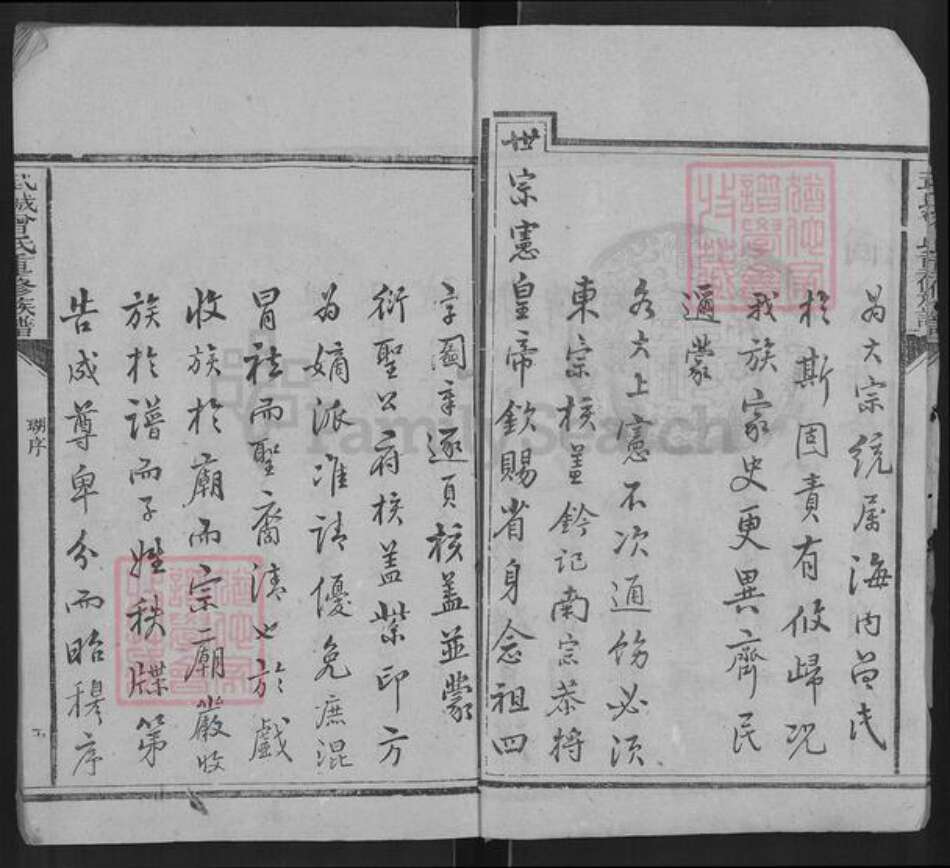 為大宗統屬海内曾氏
於斯固責有攸歸況
我族家史更異齊民
邇蒙
各大上憲不次通飭必須
東宗核蓋鈐記南宗恭將
世宗憲皇帝欽賜省身念祖四
字圖章逐頁核蓋並蒙
衍聖公府核蓋紫印方
為嫡派准請優免庶混
冒祛而聖裔清也於戲
收族於廟而宗廟嚴收
族於譜而子姓秩牒第
告成尊卑分而昭穆序
武城曾氏重修族譜
瑚序
FamilySearch